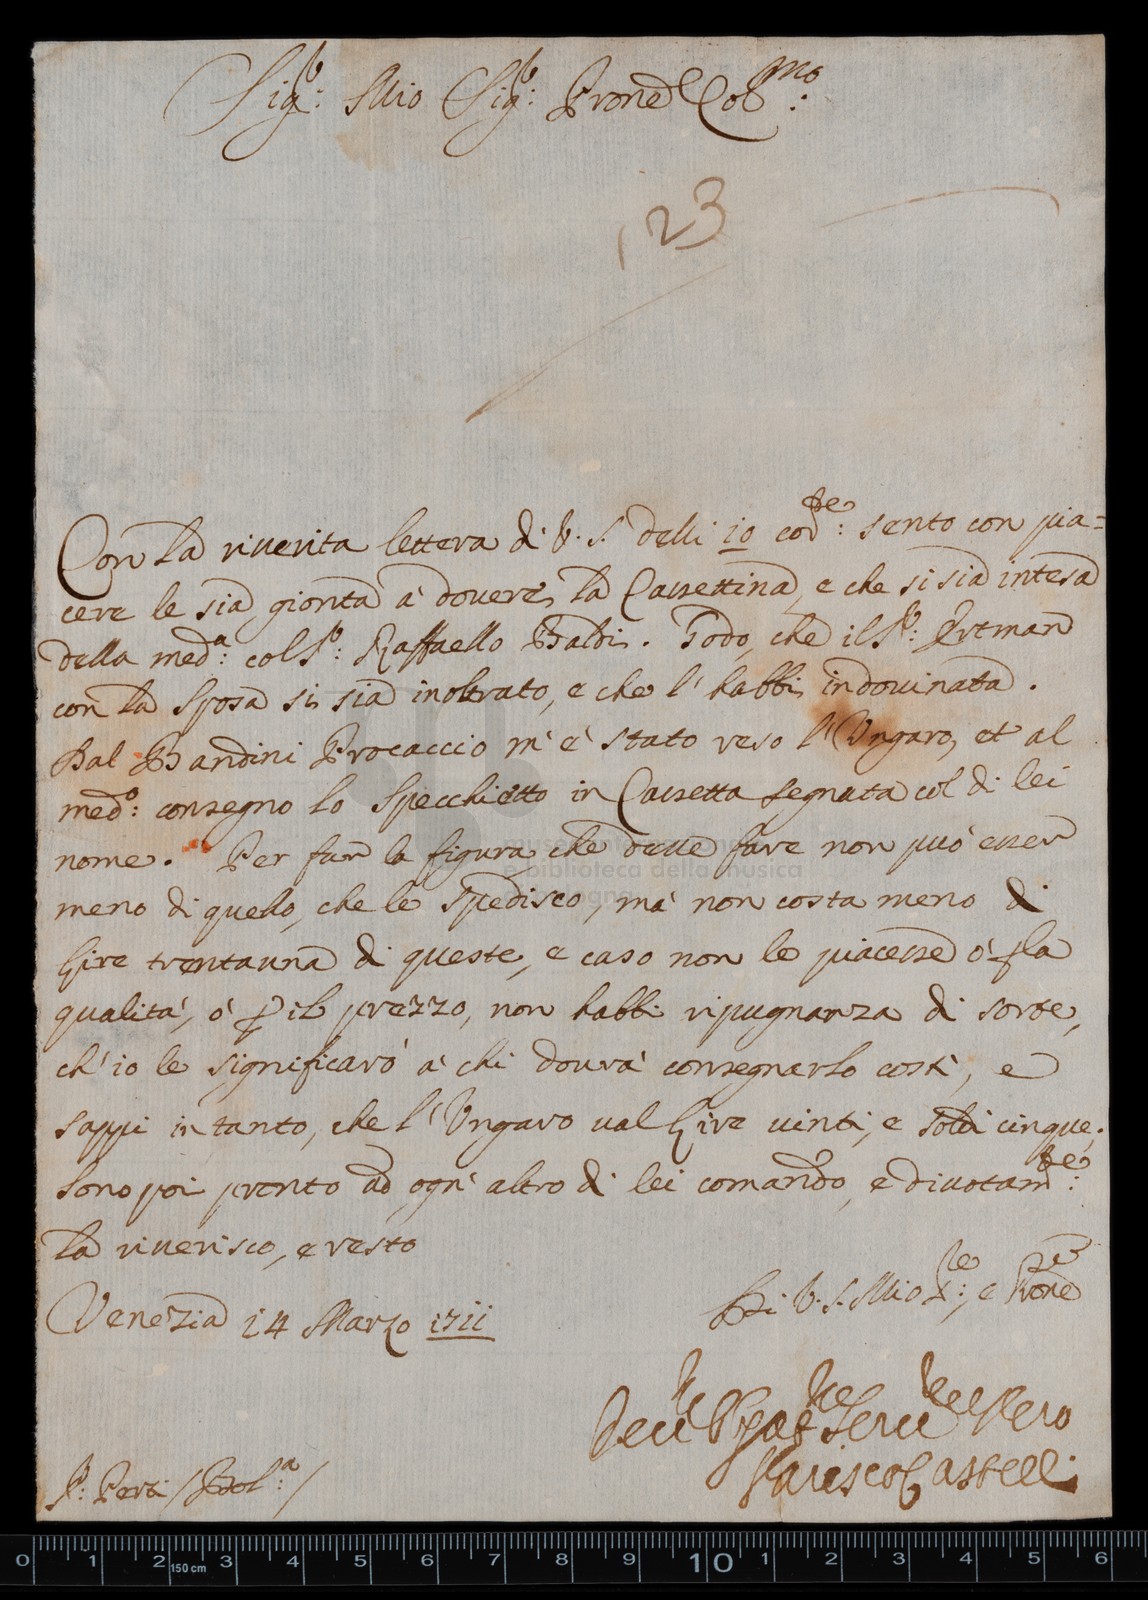 Sig.r: Mio Sig.r: Prone Col.mo:
123
Con la riuerita lettera di V. S. delli 10 cor.te: sento con pia=
cere le sia gionta à douere la Cassettina, e che si sia intesa
della med.a: col S.r: Raffaello Baldi. Godo, che il S.r: Ertman
con la Sposa si sia inoltrato, e che l'habbi indouinata.
Dal Bandini Procaccio m'è stato reso l'Ungaro, et al
med.o: consegno lo Specchietto in Cassetta segnata col di lei
nome. Per far la figura che deue fare non può esser
meno di quello, che le spedisco, mà non costa meno di
Lire trentauna di queste, e caso non le piacesse ò p la
qualità, ò p il prezzo, non habbi ripugnanza di sorte,
ch'io le significarò à chi dourà consegnarlo costì, e
sappi in tanto, che l'Ungaro ual Lire uinti, e soldi cinque;
sono poi pronto ad ogn'altro di lei comando, e diuotam.te:
la riuerisco, e resto
Venezia 14 Marzo 1711
Di V. S. Mio S.re:, e Prone
Pariso Castelli
S.r: Perti / Bol.a: /
museo
e biblioteca della musica
bologna